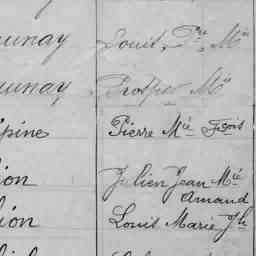 unay Louis, Pre Mie
unay Prosper Mie
pine Pierre Mie Fçois
ion Julien Jean Mie
Amand
ion Louis Marie Jh